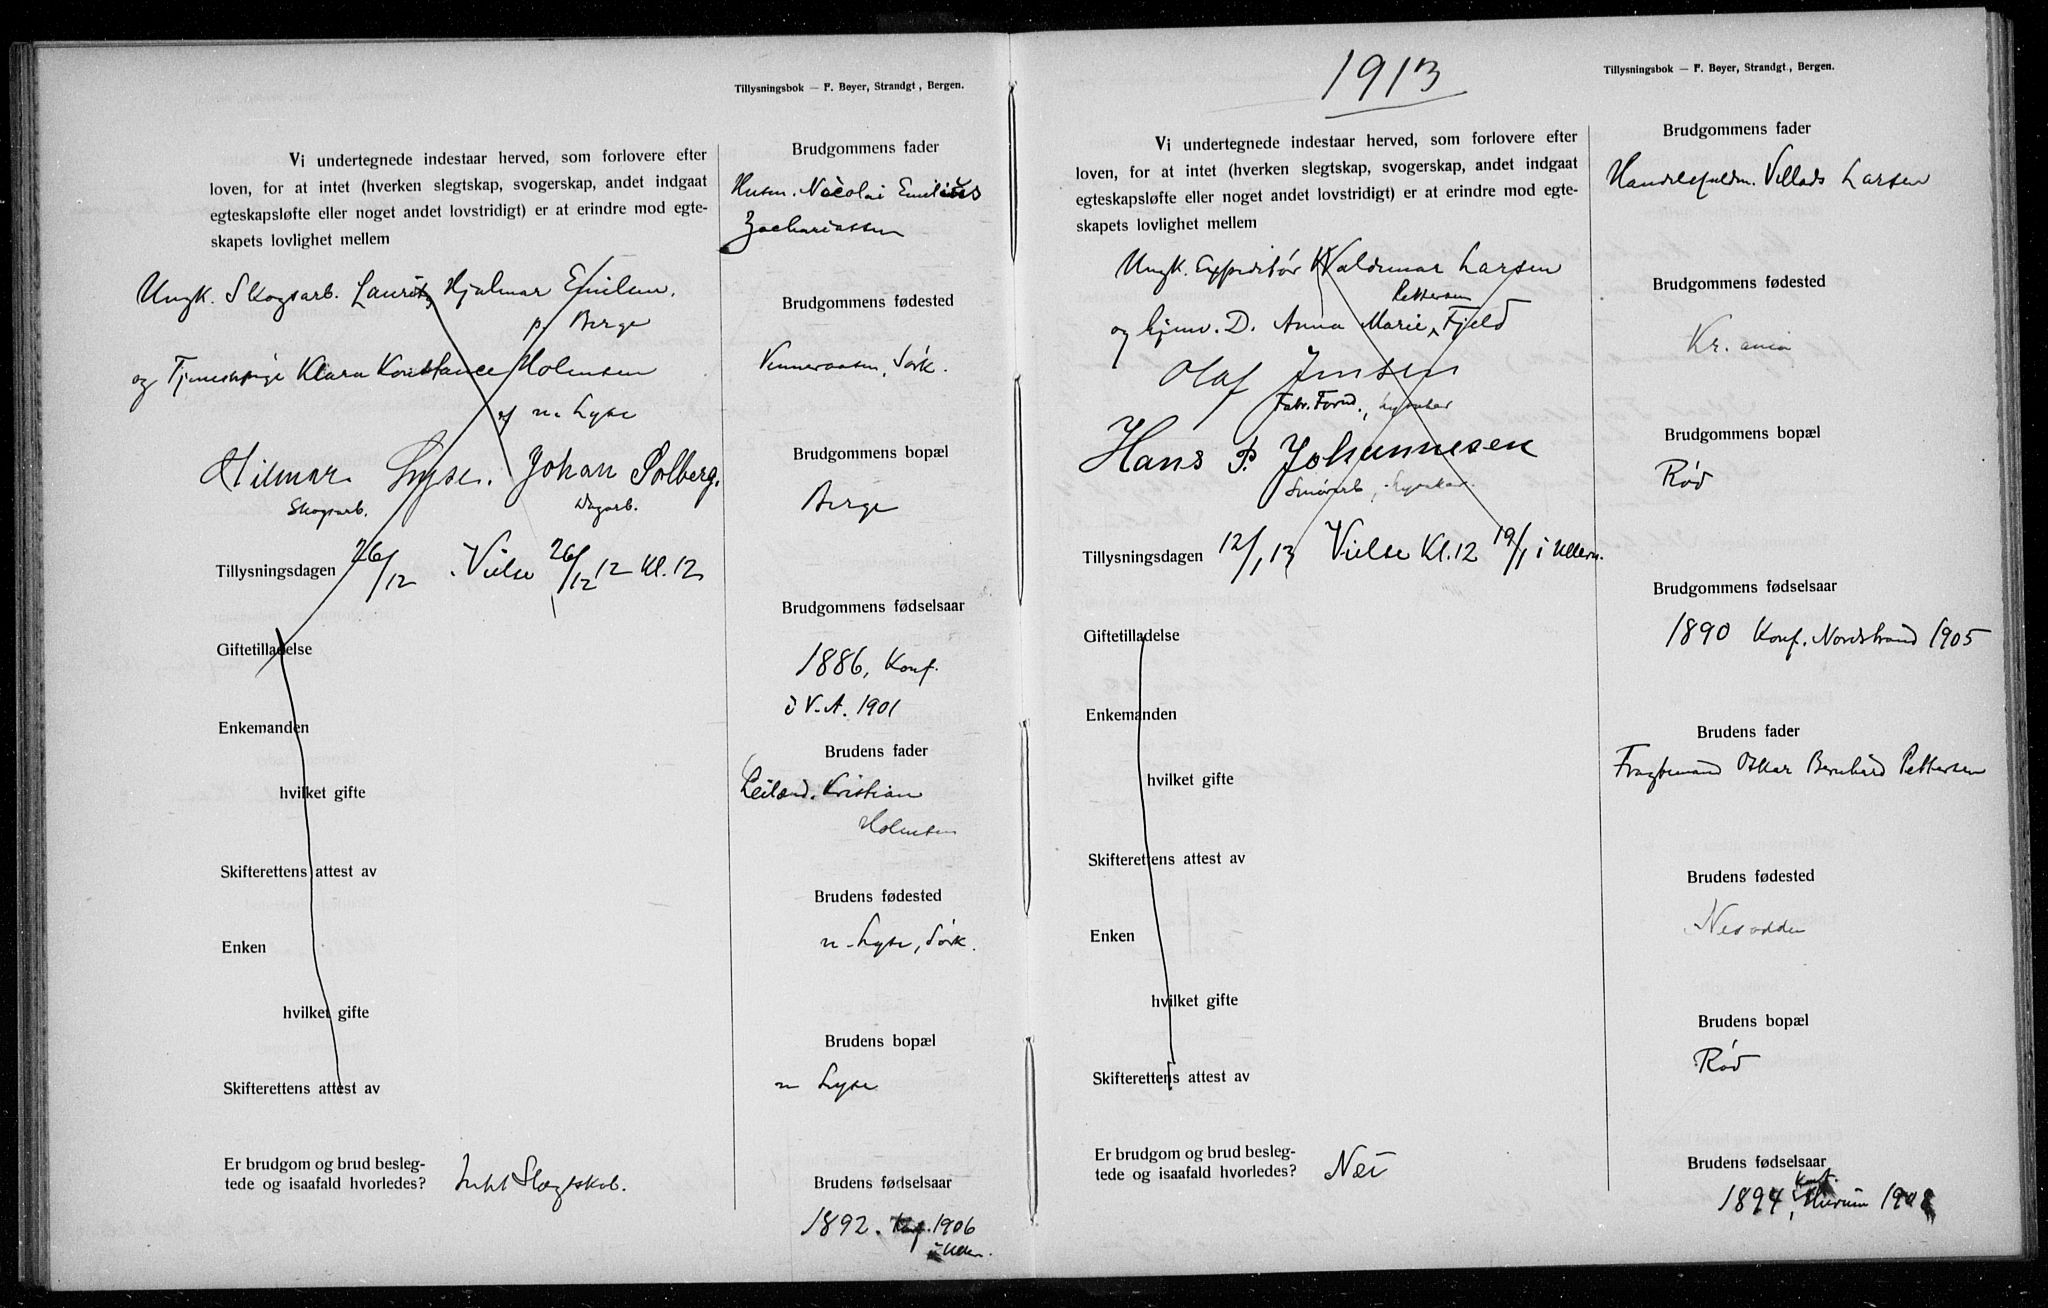 Tillysningsbok — F. Beyer, Strandgt, Bergen.
Vi undertegnede indestaar herved, som forlovere efter
loven, for at intet (hverken slegtskap, svogerskap, andet indgaat
egteskapsløfte eller noget andet lovstridigt) er at erindre mod egte-
skapets lovlighet mellem
Ungk. Skogsarb. Lauritz Hjalmar Emilsen.
p. Berge
og Tjenestepige Klara Konstance Holmsen
af n. Lyse
Hilmar Lyse. Johan Solberg.
Skogsarb. Dagarb.
Tillysningsdagen 26/12 . Vielse 26/12 12 Kl. 12
Giftetilladelse
Enkemanden
hvilket gifte
Skifterettens attest av
Enken
hvilket gifte
Skifterettens attest av
Er brudgom og brud besleg-
tede og isaafald hvorledes? Intet Slægtskab.
Brudgommens fader
Husm. Nicolai Emilius
Zachariassen
Brudgommens fødested
Venneraasen, Sørk.
Brudgommens bopæl
Berge
Brudgommens fødselsaar
1886, Konf.
i V. A. 1901
Brudens fader
Leilænd. Kristian
Holmsen
Brudens fødested
n. Lyse, Sørk.
Brudens bopæl
n Lyse
Brudens fødselsaar
1892. Konf. 1906
i Uller.
1913
Tillysningsbok — F. Beyer, Strandgt, Bergen.
Vi undertegnede indestaar herved, som forlovere efter
loven, for at intet (hverken slegtskap, svogerskap, andet indgaat
egteskapsløfte eller noget andet lovstridigt) er at erindre mod egte-
skapets lovlighet mellem
Ungk. Expeditør Waldemar Larsen
Pettersen
og hjmv. D. Anna Marie Fjeld
Olaf Jensen
Fabr. Form., Lysaker
Hans P. Johannesen
Smørarb, Lysaker.
Tillysningsdagen 12/1 13 Vielse Kl. 12 19/1 i Ullern.
Giftetilladelse
Enkemanden
hvilket gifte
Skifterettens attest av
Enken
hvilket gifte
Skifterettens attest av
Er brudgom og brud besleg-
tede og isaafald hvorledes? Nei
Brudgommens fader
Handelsfuldm. Villads Larsen
Brudgommens fødested
Kr. ania
Brudgommens bopæl
Rød
Brudgommens fødselsaar
1890 Konf. Nordstrand 1905
Brudens fader
Fragtemand Oskar Bernhard Pettersen
Brudens fødested
Nesodden
Brudens bopæl
Rød
Brudens fødselsaar
Konf.
1894, i Hurum 1908